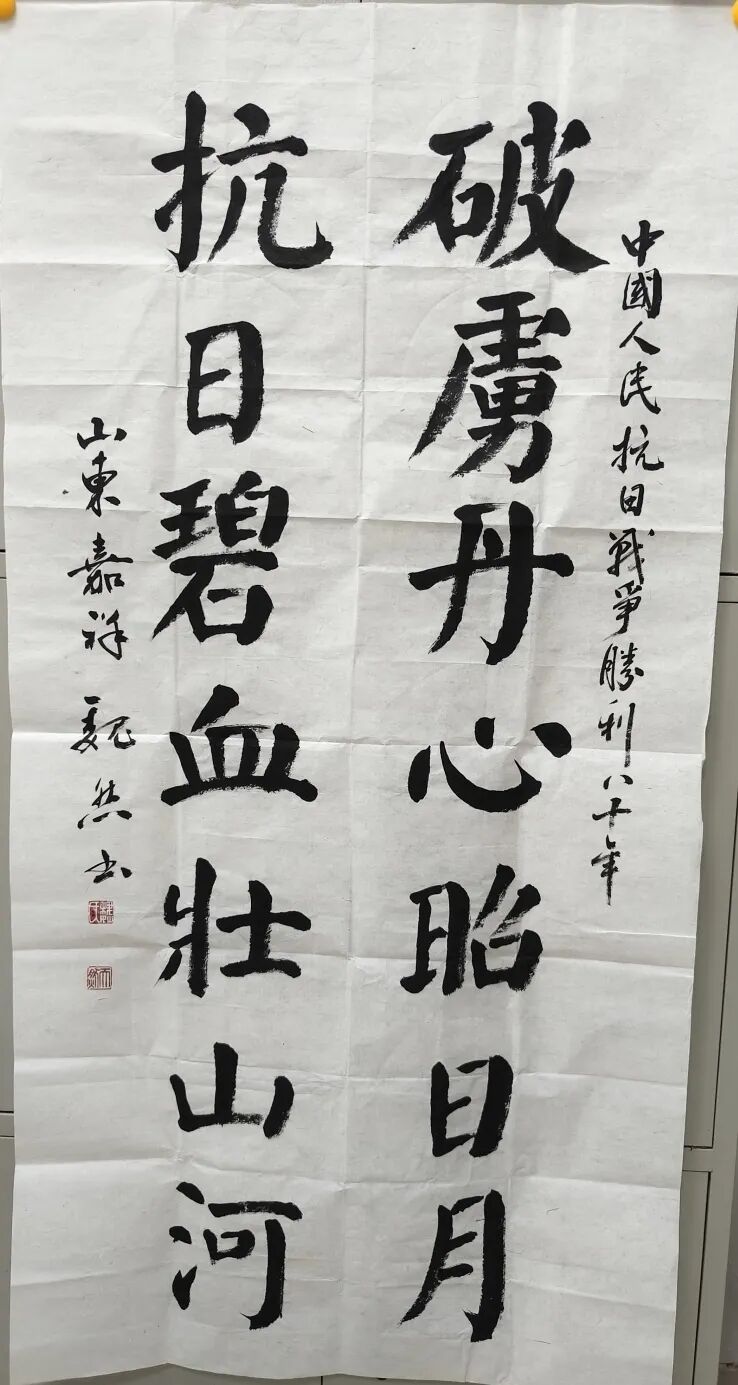 中國人民抗日戰爭勝利八十年
破虜丹心昭日月
抗日碧血壯山河
山東嘉祥魏然书